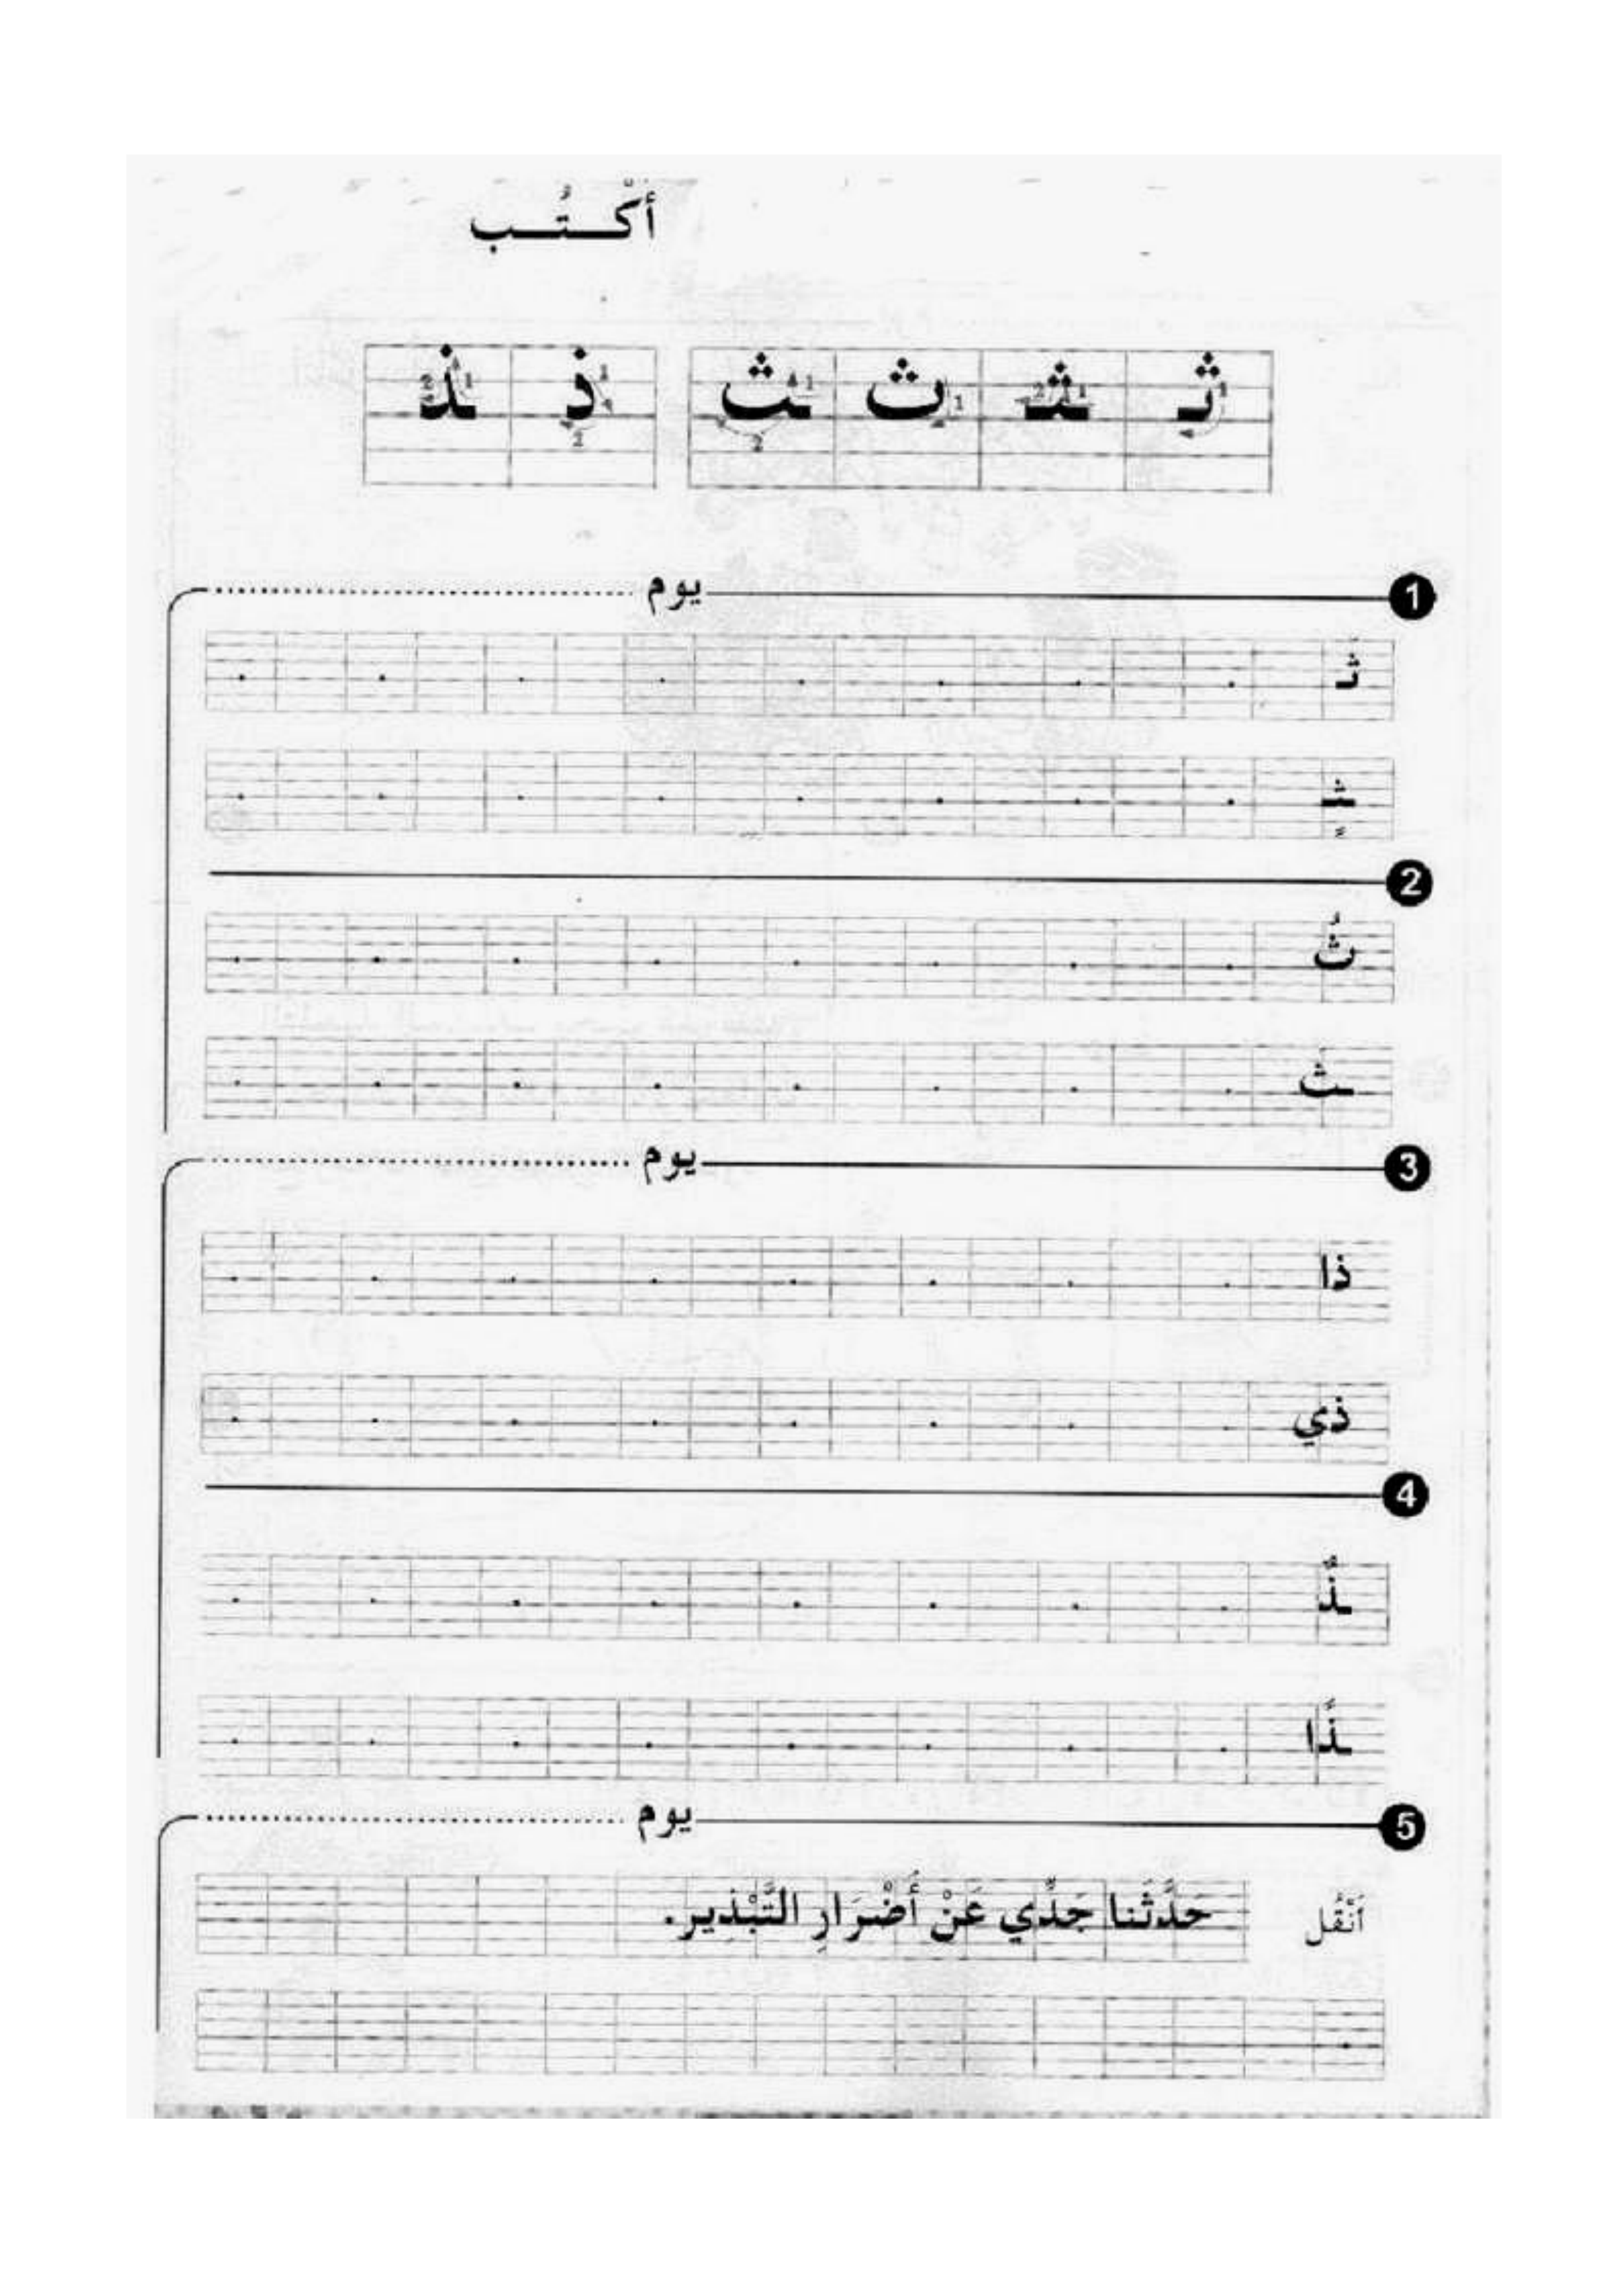 أَكْـتُـب
ثـ ـثـ ث ـث ذ ـذ
1 يوم
ثَـ
ـثٍـ
2
ثُ
ـث
3 يوم
ذا
ذي
4
ـذٌ
ـذًا
5 يوم
أَنْقُل حَدَّثَنا جَدِّي عَنْ أَضْرَارِ التَّبْذِيرِ.